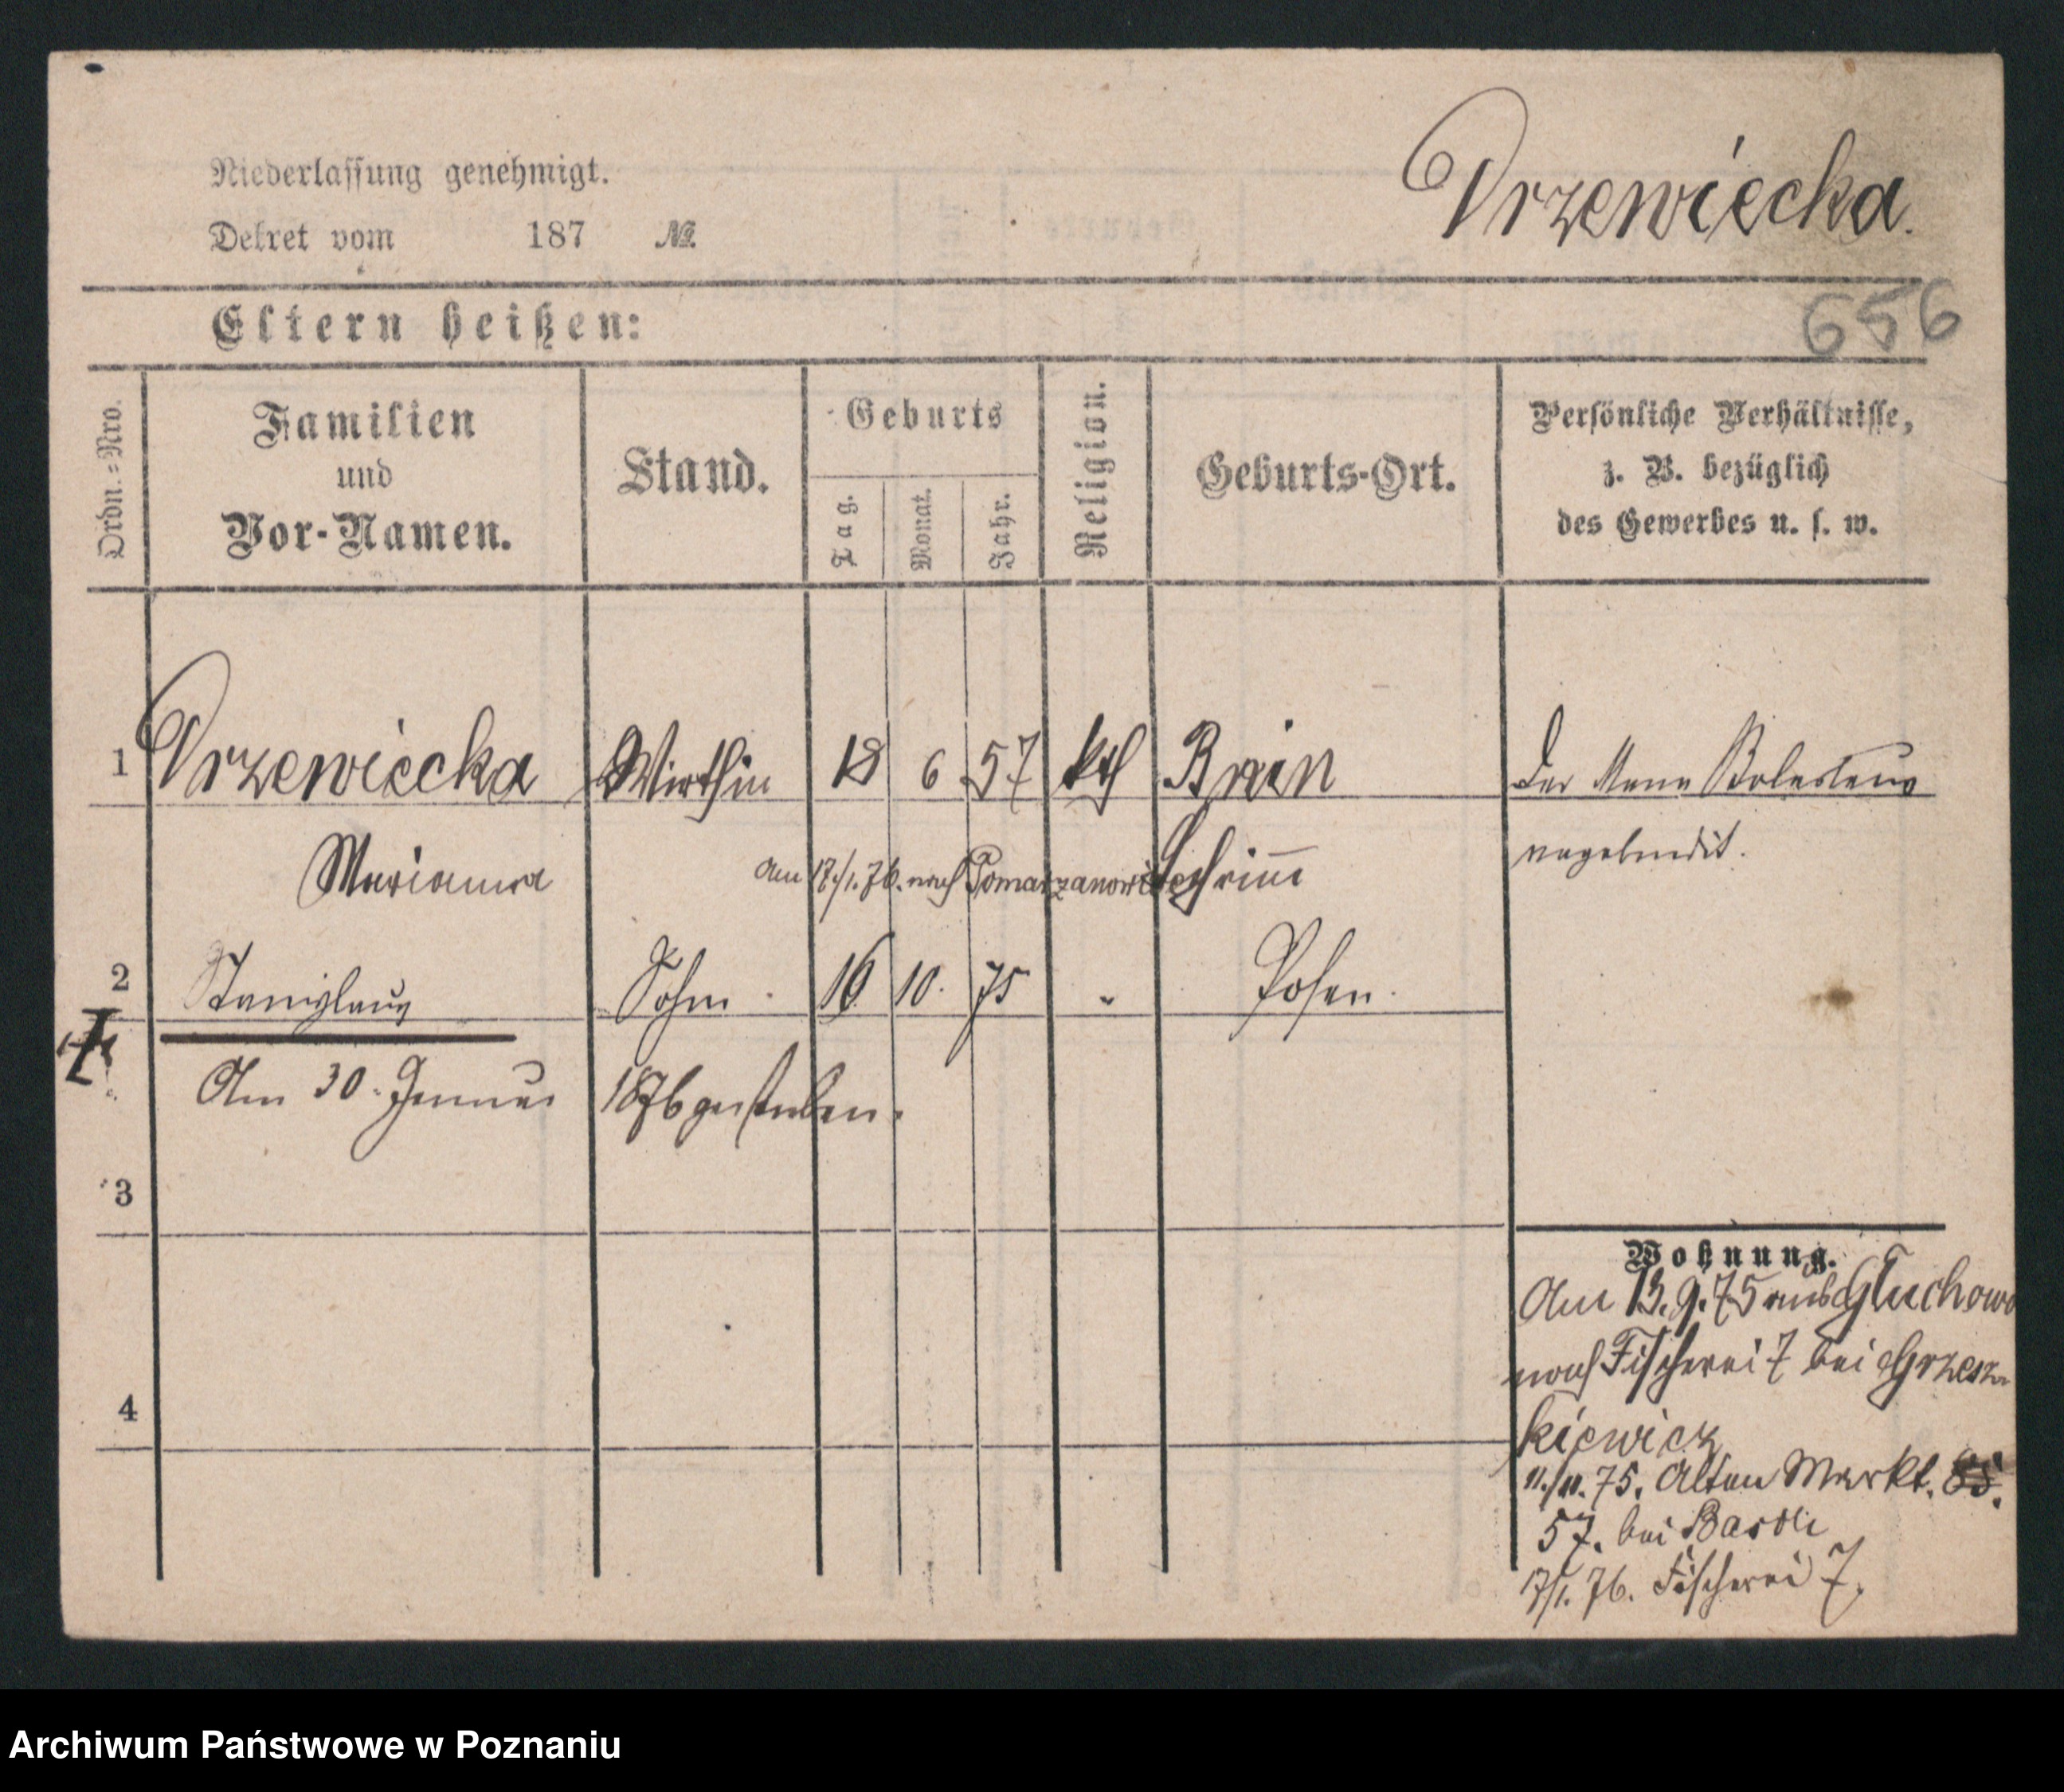 Niederlassung genehmigt.
Dekret vom 187 №.
Drzewiecka.
656
Eltern heißen:
Ordn.=Nro.
Familien
und
Vor-Namen.
Stand.
Geburts
Tag.
Monat.
Jahr.
Religion.
Geburts-Ort.
Persönliche Verhältnisse,
z. B. bezüglich
des Gewerbes u. s. w.
1 Drzewiecka Wirthin 18 6 57 kth Bnin
Der Mann Boleslaus
Marianna
am 17./1. 76. nach Pomarzanowice
Schrimm
2 Stanislaus Sohn 16 10. 75 " Posen.
Am 30. Januar 1876 gestorben.
3
4
Wohnung.
Am 13. 9. 75 aus Gluchowo
nach Fischerei 7 bei Grzesz
kiewicz
11./11. 75. Alten Markt. 85.
57. bei
17/1. 76. Fischerei 7.
Archiwum Państwowe w Poznaniu